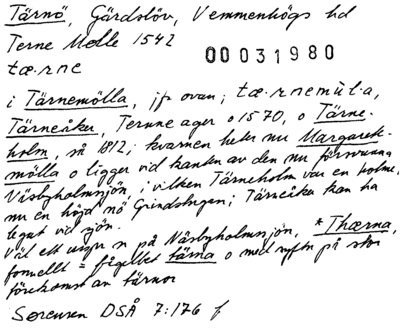 Tärnö, Gärdslöv, Vemmenhögs hd
Terne Mølle 1542
00031980
tæ·rne
i Tärnemölla, jfr ovan; tæ·rnemùl·a,
Tärneåker, Ternne ager o 1570, o Tärne-
holm, så 1812; kvarnen heter nu Margarete-
mölla o ligger vid kanten av den nu försvunna
Näsbyholmsjön, i vilken Tärneholm var en holme,
nu en höjd nö Grindstugan; Tärneåker kan ha
legat vid sjön.
Väl ett urspr n på Näsbyholmsjön, *Thærna,
formellt = fågelbet tärna o med syftn på stor
förekomst av tärnor
Sørensen DSÅ 7:176 f